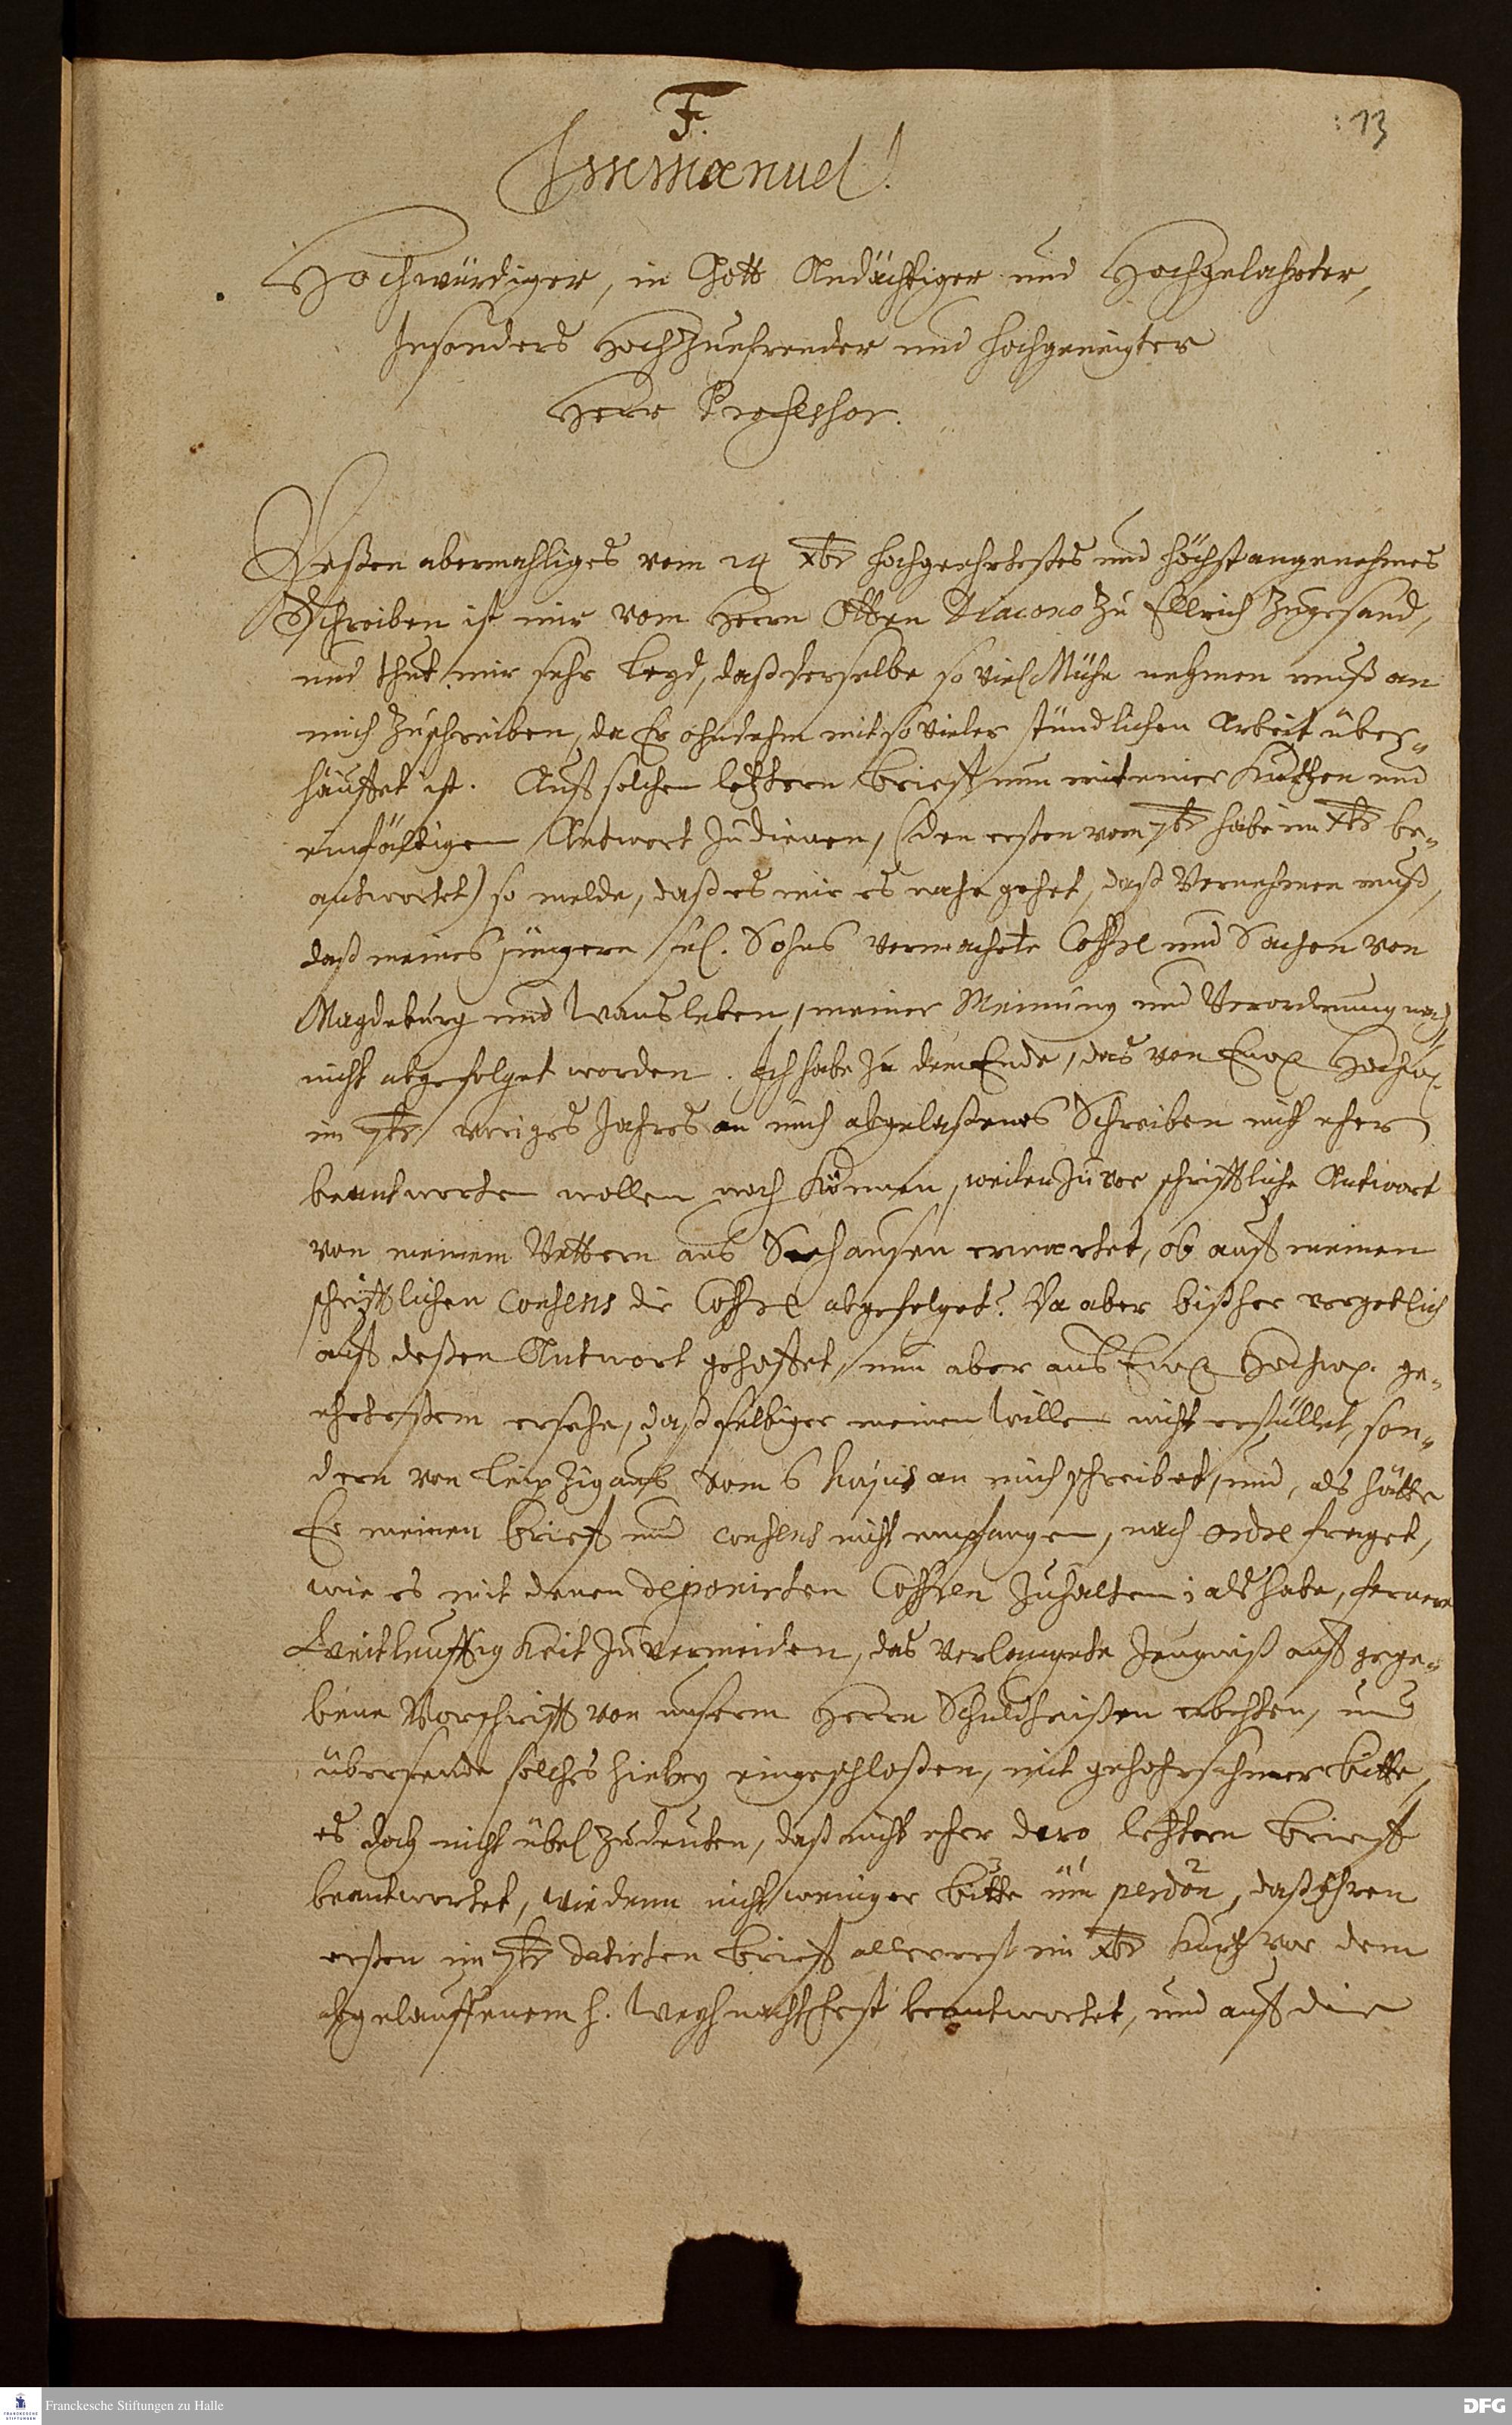 F.
: 13
Immanuel!
Hochwürdiger, in Gott Andächtiger und Hochgelahrter,
Insonders HochZuehrender und hochgeneigter
Herr Professor.
Deßen abermahliges vom 24 Xbr hochgeehrtestes und höchstangenehmes
Schreiben ist mir vom Herrn Otten Diacono zu Ellrich zugesand,
und thut mir sehr leyd, daß derselbe so viel Mühe nehmen muß an
mich zuschreiben, da Er ohndehm mit so vieler stündlichen Arbeit über-
häuffet ist. Auf solchen letztern brieff nun mit einer kurtzen und
einfältigen Antwort zudienen, (den ersten vom 7br habe im Xbr be-
antwortet) so melde, daß es mir es nahe gehet, daß vernehmen muß,
daß meines jüngern sel. Sohns vermachete Coffre und Sachen von
Magdeburg und Wansleben, meiner Meinung und Verordnung nach
nicht abgefolget worden. Ich habe zu dem Ende, das von Ew. Hochw.
im 7br voriges Jahres an mich abgelaßenes Schreiben nicht eher
beantworten wollen noch können, weilen zuvor schrifftliche Antwort
von meinem Vettern aus Seehausen erwartet, ob auff meinen
schrifftlichen Consens die Coffre abgefolget? Da aber bißher vergeblich
auff deßen Antwort gehoffet, nun aber aus Ew. Hochw. ge-
ehrtestem ersehe, daß selbiger meinen Willen nicht erfüllet, son-
dern von Leipzig aus vom 6 hujus an mich schreibet, und, als hätte
Er meinen brieff und consens nicht empfangen, nach ordre fraget,
wie es mit denen deponirten Coffren zuhalten; als habe, fernere
Weitleufftigkeit zuvermeiden, das verlangete Zeugniß auff gege-
bene Vorschrifft von unserm Herrn Schuldheißen erbehten, und
übersende solches hiebey eingeschloßen, mit gehohrsamer bitte,
es doch nicht übel zudeuten, daß nicht eher dero letztern brieff
beantwortet, wie denn nicht weniger bitte³ üm¹ perdon², daß Ihren
ersten im 7br datirten brieff allererst im Xbr kurtz vor dem
abgelauffenem h. Weyhnachtsfest beantwortet, und auff die
Franckesche Stiftungen zu Halle
DFG